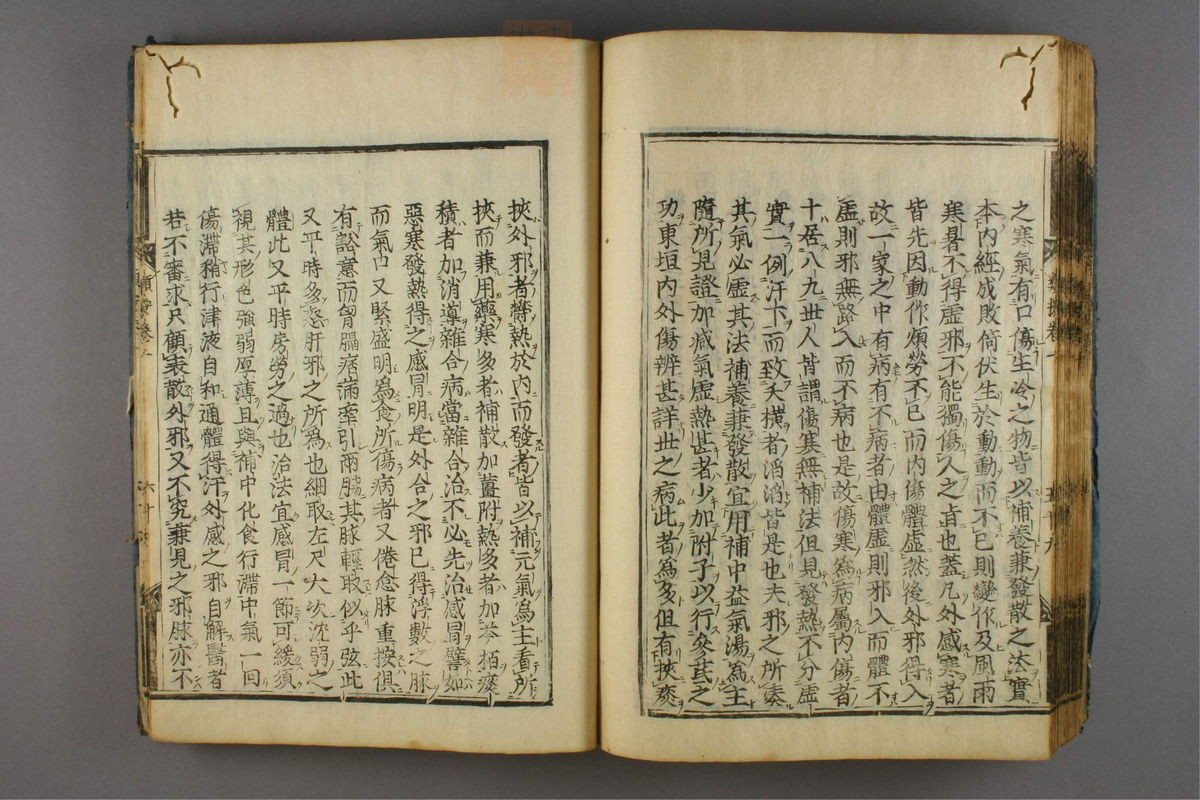 之寒氣有口傷生冷之物皆以補養兼發散之法實
本内經成敗倚伏生於動動而不已則變作及風雨
寒暑不得虛邪不能獨傷人之旨也蓋凡外感寒者
皆先因動作煩勞不已而内傷體虛然後外邪得入
故一家之中有病有不病者由體虛則邪入而體不
虛則邪無路入而不病也是故傷寒為病屬内傷者
十居八九世人皆謂傷寒無補法但見發熱不分虛
實一例汗下而致夭橫者滔滔皆是也夫邪之所湊
其氣必虛其法補養兼發散宜用補中益氣湯為主
隨所見證加減氣虛熱甚者少加附子以行參芪之
功東垣内外傷辨甚詳世之病此者為多但有挾痰
挾外邪者欝熱於内而發者皆以補元氣為主看所
挾而兼用藥寒多者補散加薑附熱多者加芩栢痰
積者加消導雜合病當雜合治不必先治感冒譬如
惡寒發熱得之感冒明是外合之邪已得浮數之脉
而氣口又緊盛明為食所傷病者又倦怠脉重按俱
有澁意而胷膈痞滿牽引兩脇其脉輕取似乎弦此
又平時多怒肝邪之所為也細取左尺大次沈弱之
體此又平時房勞之過也治法宜感冒一節可緩須
視其形色強弱厚薄且與補中化食行滯中氣一回
傷滯稍行津液自和通體得汗外感之邪自解醫者
若不審求尺顧表散外邪又不究兼見之邪脉亦不